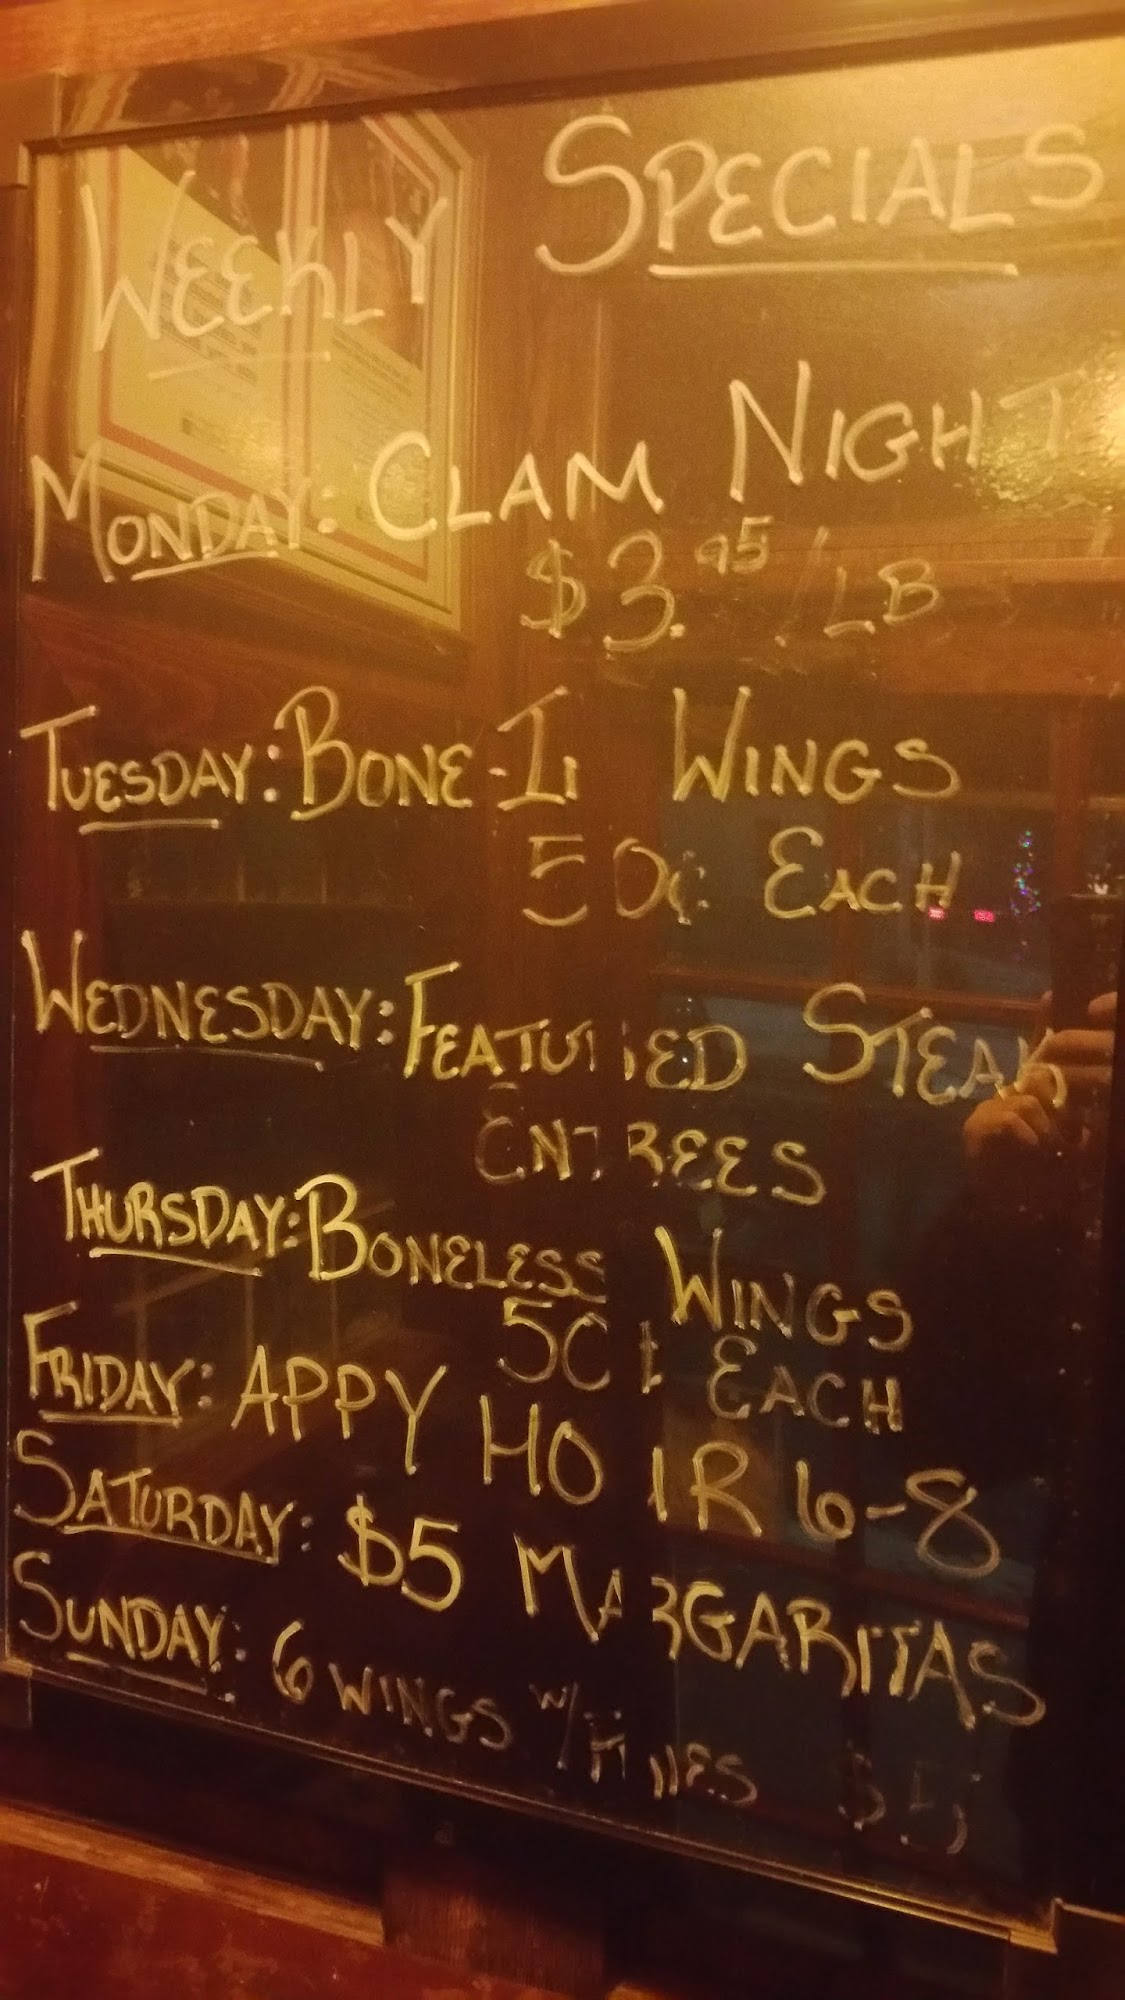 WEEKLY SPECIALS
MONDAY: CLAM NIGHT
$3.95/LB
TUESDAY: BONE-IN WINGS
50¢ EACH
WEDNESDAY: FEATURED STEAK
ENTREES
THURSDAY: BONELESS WINGS
50¢ EACH
FRIDAY: APPY HOUR 6-8
SATURDAY: $5 MARGARITAS
SUNDAY: 6 WINGS W/FRIES $5